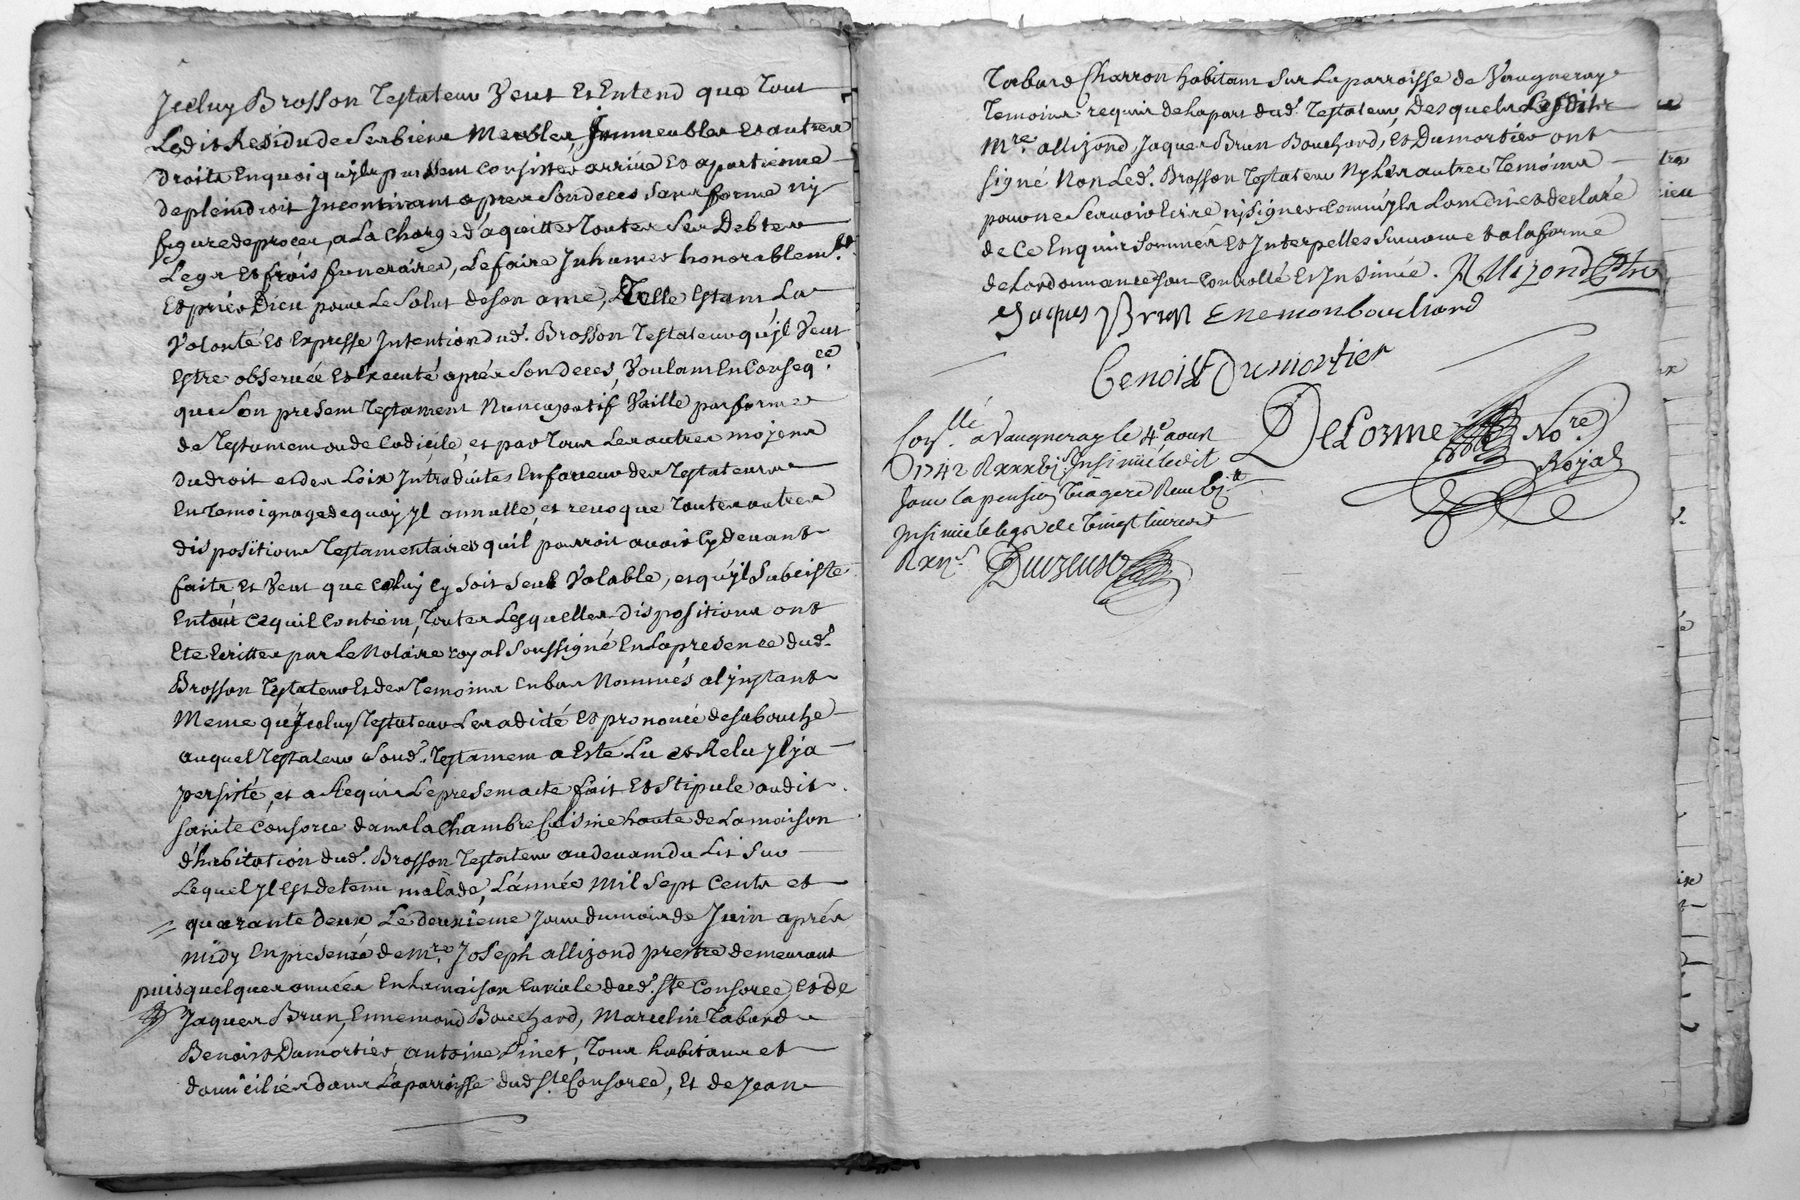 Jceluy Brosson Testateur Veut Et Entend que Tout
Ledit Residu de Ses biens Meubles, Jmmeubles et autres
droits En quoi quyls puissent consister arrive Et apartienne
de plein droit Jncontinant apres Son deces Sans forme ny
figure de proces, a La charge d'aquitter Toutes Ses Debtes
Legs Et frais funeraires, Le faire Jnhumer honorablemt. Et
Et prier Dieu pour Le Salut de Son ame, Telle Estant La
Volonté Et Expresse Jntention dud. Brosson Testateur qu'yl Veut
Estre observée Et Executé aprés Son deces, Voulant En Conseqce.
que Son present Testament Nuncupatif Vaille par forme
de Testament ou de Codicile, et par Tous Les autres moyens
du droit et des Loix Jntroduites En faveur des Testateurs
En Temoignage de quoy yl annulle, et revoque Toutes autres
dispositions Testamentaires qu'il pourroit avoir Cy devant
faits Et Veut que celuy Cy Soit Seul Valable, et qu'yl Subsiste
En tout Ce qu'il Contient, Toutes Lesquelles Dispositions ont
Eté Ecrittes par Le Notaire royal Soussigné En La presence dud.
Brosson Testateur Et des Temoins En bas Nommés a l'ynstant
Meme qu'Jceluy Testateur Les a dicté Et prononcé de Sa bouche
auquel Testateur Soud. Testament a Esté Lu et Relu yl y a
persisté, et a Requis Le present acte fait Et Stipulé audit
sainte Consorce dans la Chambre Cuisine haute de La maison
d'habitation dud. Brosson Testateur au devant du Lit Sur
Lequel yl Est detenu malade, L'année Mil Sept Cents et
quarante deux Le deuxieme Jour du mois de Juin aprés
midy En presence de Mre. Joseph allizond prestre demeurant
puis quelques années En La maison Curiale dud. Ste Consorce, et De
Jaques Brun, Ennemond Bouchard, Marcelin Tabard
Benoist Dumortier, antoine Pinet, Tous habitans et
domiciliés dans La parroisse dud Ste Consorce, Et de Jean
Tabard Charron habitant Sur La parroisse de Vaugneray
Temoins requis de La part dud. Testateur, Desquels Lesdits
Mre. allizond, Jaques Brun Bouchard, et Dumortier ont
signé Non Led. Brosson Testateur Ny Les autres Temoins
pour ne Scavoir Ecrire ny Signer comme yls L'ont dit et declaré
de Ce Enquis Sommés Et Jnterpelles Suivant et a la forme
de Lordonnance Sera Controllé Et Jnsinué. Allizond Ptre
Jaques Brun Enemon bouchard
Benoist Dumortier
Conllé a Vaugneray le 4e aoust
1742 R xxxbj Jnsinué ledit
Jour la pension Viagere Reçu
Jnsinué le legs de Vingt livres
Delorme Nore
Royal